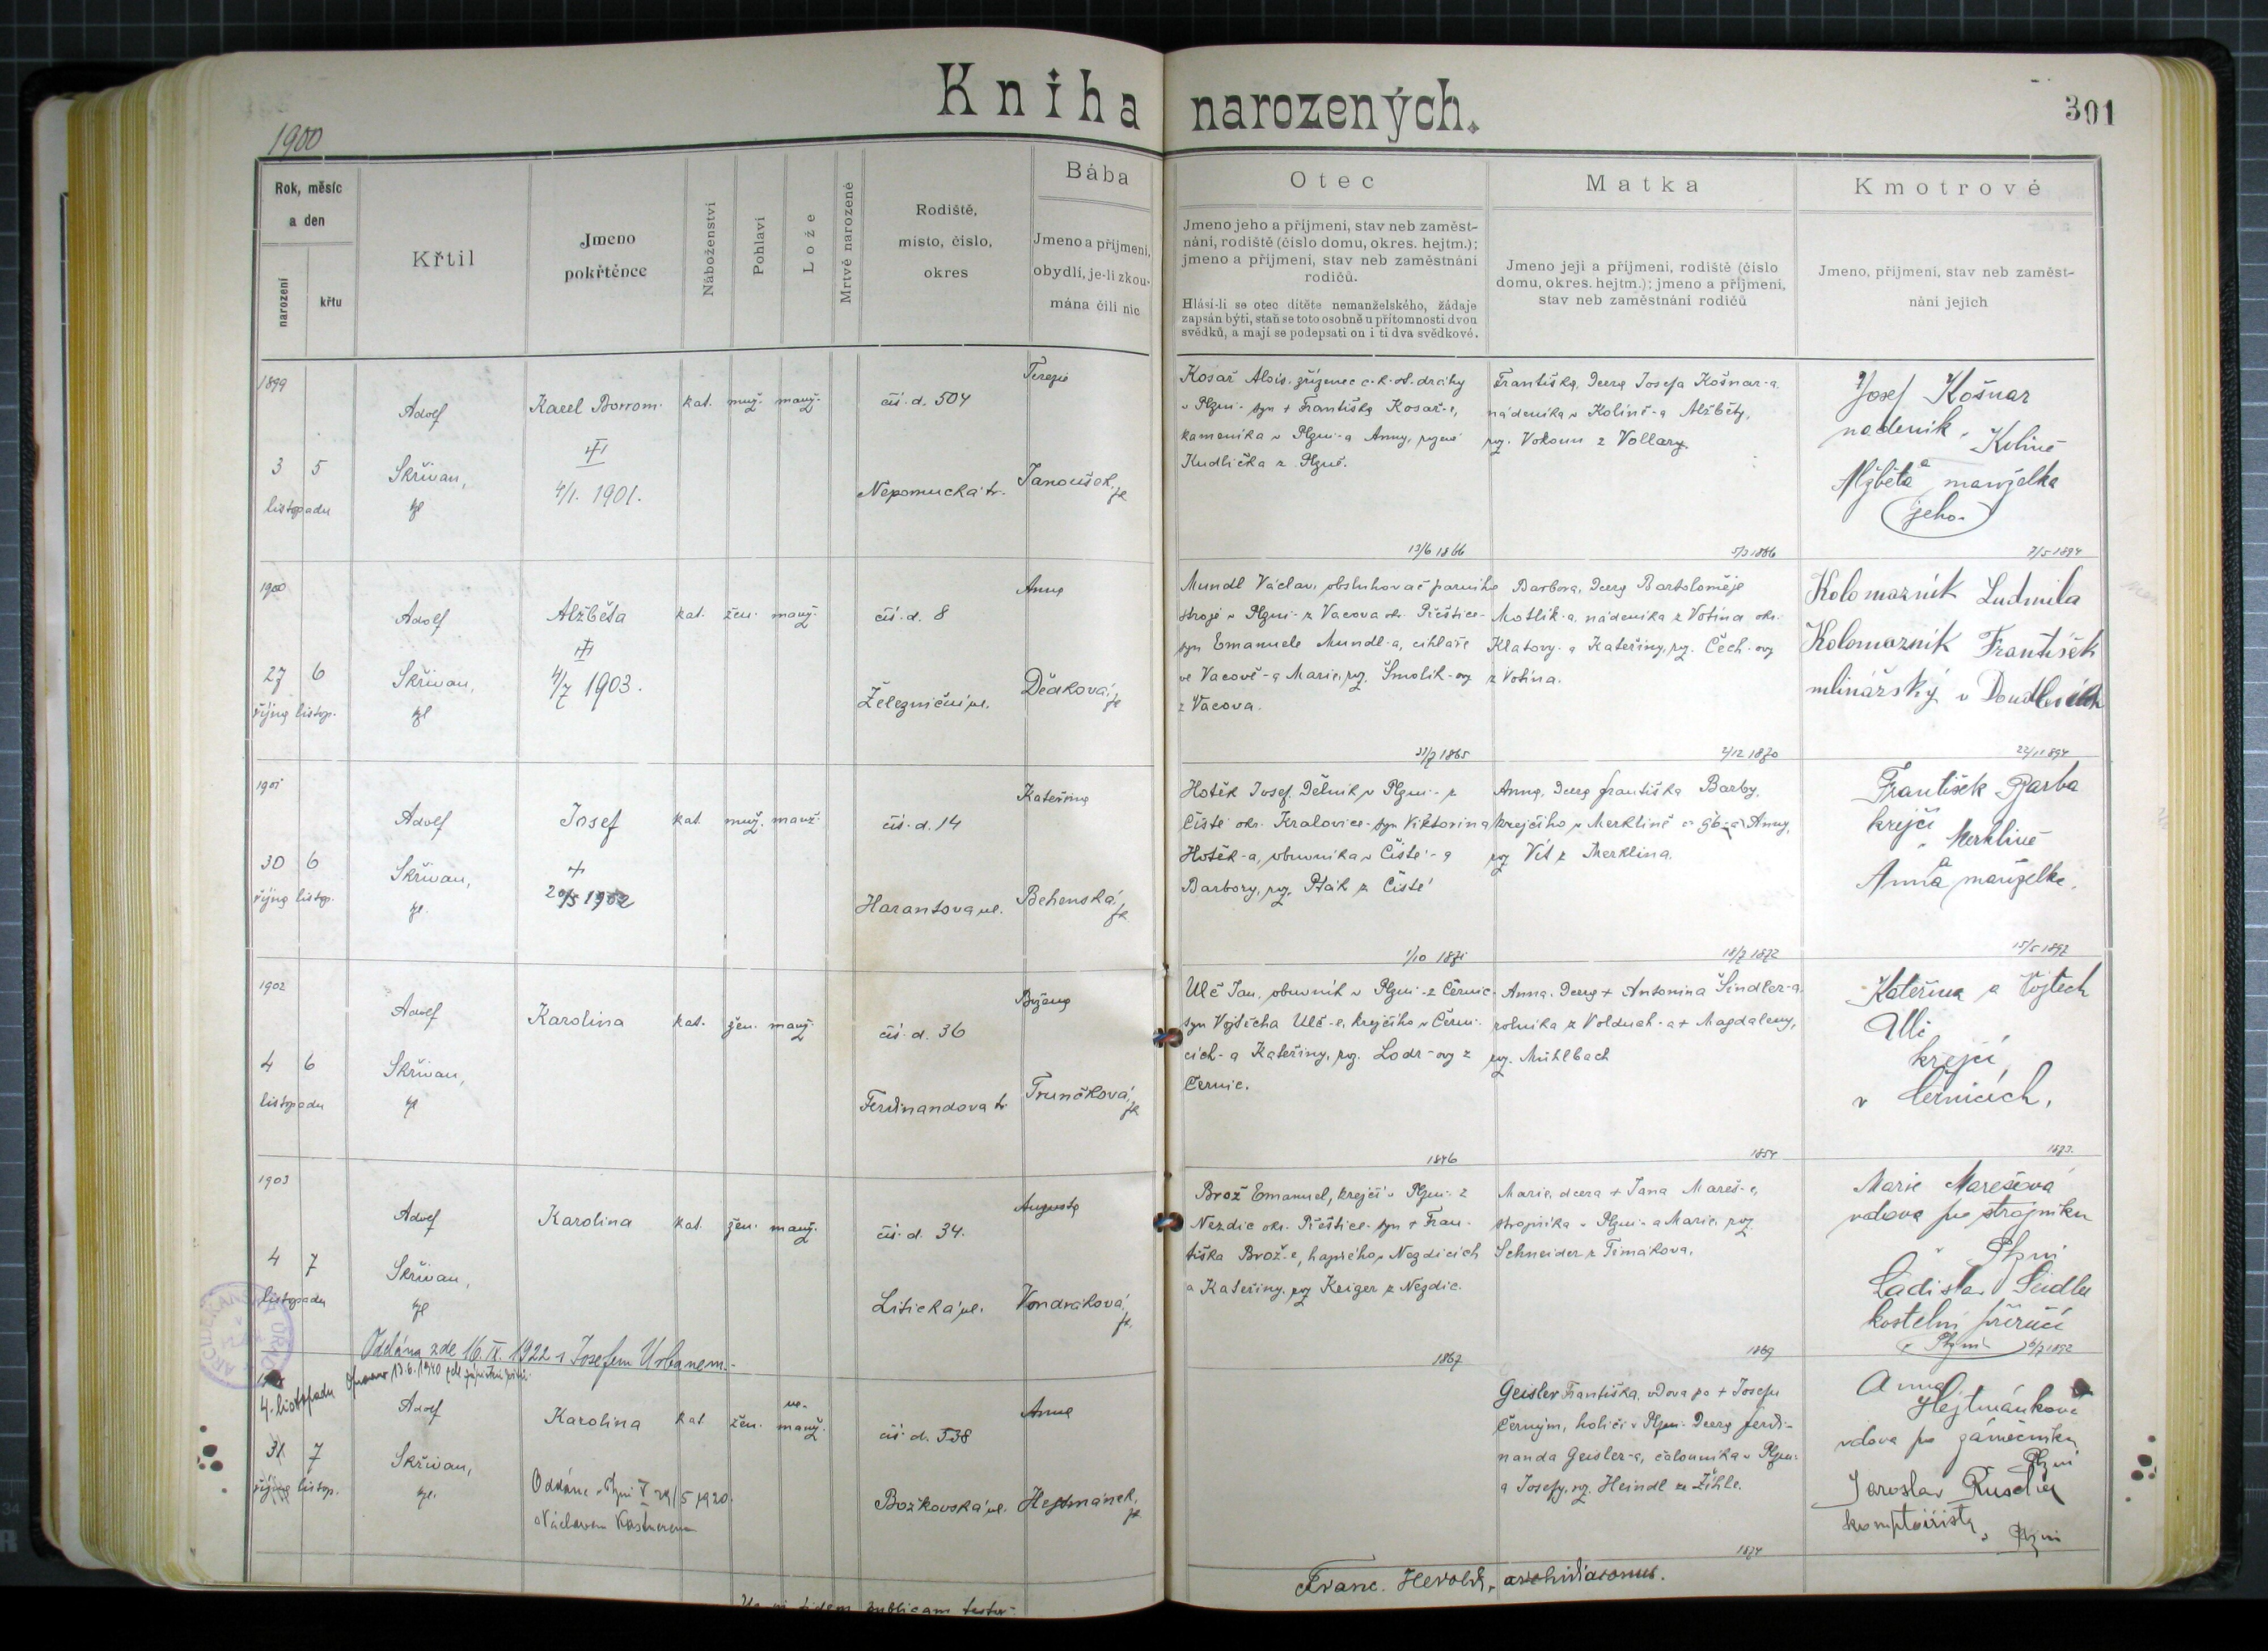 Kniha narozených.
301
1900
Rok, měsíc
a den
narození
křtu
Křtil
Jmeno
pokřtěnce
Náboženství
Pohlaví
Lože
Mrtvě narozené
Rodiště,
místo, číslo,
okres
Bába
Jmeno a příjmení,
obydlí, je-li zkou-
mána čili nic
Otec
Jmeno jeho a příjmení, stav neb zaměst-
nání, rodiště (číslo domu, okres. hejtm.);
jmeno a příjmení, stav neb zaměstnání
rodičů.
Hlásí-li se otec dítěte nemanželského, žádaje
zapsán býti, staň se toto osobně u přítomnosti dvou
svědků, a mají se podepsati on i ti dva svědkové.
Matka
Jmeno její a příjmení, rodiště (číslo
domu, okres. hejtm.); jmeno a příjmení,
stav neb zaměstnání rodičů
Kmotrové
Jmeno, příjmení, stav neb zaměst-
nání jejich
1899
3 5
listopadu
Adolf
Skřivan,
Karel Borrom.
4/1. 1901.
kat. muž. manž.
čís. d. 504
Nepomucká tr.
Terezie
Janoušek,
Kosař Alois, zřízenec c. k. st. dráhy
v Plzni - syn + Františka Kosař-e,
kameníka v Plzni - a Anny, rozené
Kudlička z Plzně.
13/6 1866
Františka, dcera Josefa Košnar-a,
nádeníka v Kolíně - a Alžběty,
roz. Vokoun z Vollary.
5/3 1866
Josef Košnar
nádeník, Kolíně
a
Alžběta manželka
jeho.
7/5 1894
1900
27 6
října listop.
Adolf
Skřivan,
Alžběta
4/7 1903.
kat. žen. manž.
čís. d. 8
Železniční ul.
Anna
Dědková,
Mundl Václav, obsluhovač parního
stroje v Plzni - z Vacova ok. Přeštice -
syn Emanuele Mundl-a, cihláře
ve Vacově - a Marie, roz. Smolík-ovy
z Vacova.
21/7 1865
Barbora, dcera Bartoloměje
Motlík-a, nádeníka z Votína okr.
Klatovy - a Kateřiny, roz. Čech-ovy
z Votína.
2/12 1870
Kolomazník Ludmila
Kolomazník František
mlinářský v Doudlevcích
22/11 894
1901
30 6
října listop.
Adolf
Skřivan,
Josef
+
20/5 1902
kat. muž. manž.
čís. d. 14
Harantova ul.
Kateřina
Behenská,
Hotěk Josef, dělník v Plzni - z
Čisté okr. Kralovice - syn Viktorina
Hotěk-a, obuvníka v Čisté - a
Barbory, roz. Pták z Čisté
1/10 1871
Anna, dcera Františka Barby,
krejčího v Merklíně č. 96 - a Anny,
roz. Vít z Merklína.
18/7 1872
František Barba
krejčí
v Merklíně
a
Anna manželka.
15/5 1897
1902
4 6
listopadu
Adolf
Skřivan,
Karolina
kat. žen. manž.
čís. d. 36
Ferdinandova tr.
Božena
Trunčková,
Ulč Jan, obuvník v Plzni - z Černic -
syn Vojtěcha Ulč-e, krejčího v Černi-
cích - a Kateřiny, roz. Lodr-ovy z
Černic.
1876
Anna, dcera + Antonína Šindler-a,
rolníka z Volduch - a + Magdaleny,
roz. Mühlbach
1854
Kateřina a Vojtěch
Ulč
krejčí,
v Černicích,
1873.
1903
4 7
listopadu
Adolf
Skřivan,
Karolina
kat. žen. manž.
čís. d. 34.
Litická ul.
Augusta
Vondráková,
Brož Emanuel, krejčí v Plzni - z
Nezdic okr. Přeštice - syn + Fran-
tiška Brož-e, v Nezdicích
a Kateřiny, roz. Kriger z Nezdic.
1867
Marie, dcera + Jana Mareš-e,
strojníka v Plzni - a Marie, roz.
Schneider z Timákova.
1869
Marie Marešová
vdova po strojníku
v Plzni
Ladislav
kostelní
v Plzni
Oddána zde 16. IX. 1922 s Josefem Urbanem.
4. listopadu
31. 7
října listop.
Adolf
Skřivan,
Karolina
Oddána v Plzni 29/5 1920.
s Václavem
kat. žen. ne-
manž.
čís. d. 538
Božkovská ul.
Anna
Hejtmánek,
Geisler Františka, vdova po + Josefu
Černým, holiči v Plzni - dcera Ferdi-
nanda Geisler-a, čalouníka v Plzni
a Josefy, roz. Heindl ze Žihle.
1874
Anna
Hejtmánková
vdova po zámečníku
Plzni
Jaroslav
komptoirista,
v Plzni
Franc. Herold, archidiaconus.